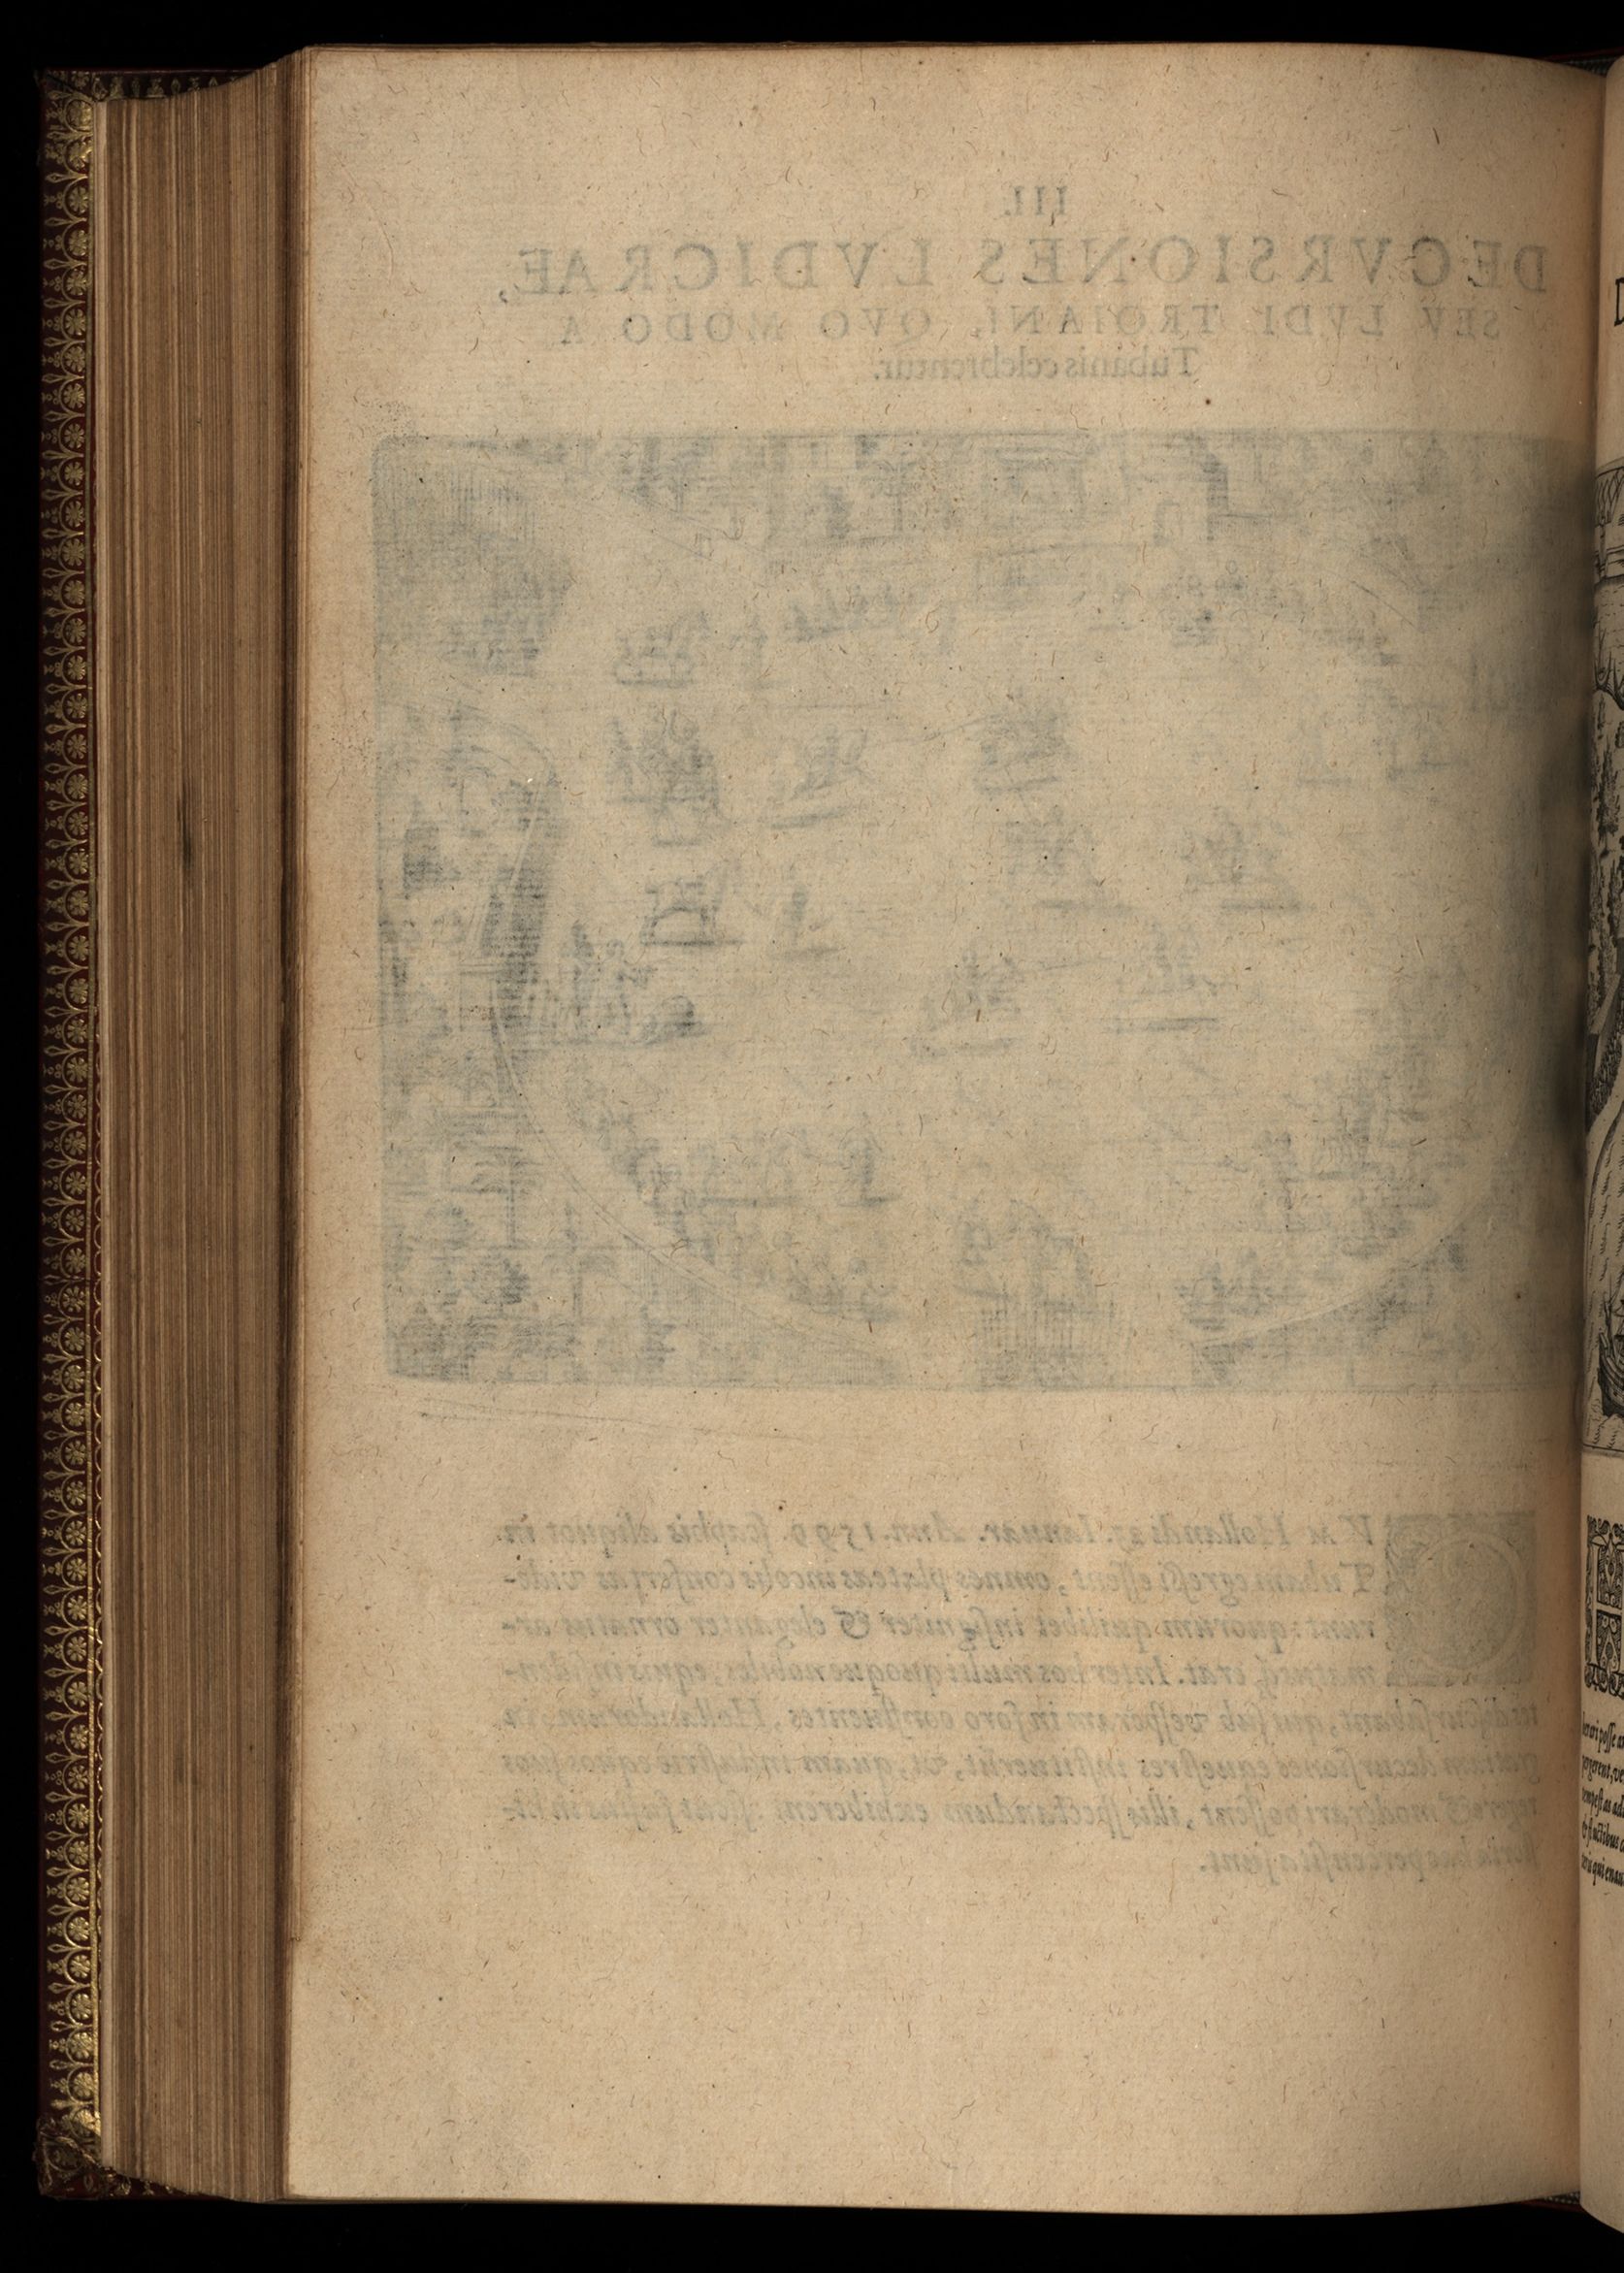 III.
DECVRSIONES LVDICRAE,
SEV LVDI TROIANI, QVO MODO A
Tubanis celebrentur.
V M Hollandi 25. Ianuar. Ann. 1599. ſcaphis aliquot in
Tubam egreſsi eſſent, omnes plateas incolis confertas vide-
runt: quorum quilibet inſigniter & eleganter ornatus ar-
matusq́; erat. Inter hos multi quoque nobiles, equis inſiden-
tes diſcurſabant, qui ſub veſperam in foro confluentes, Hollandorum in
gratiam decurſiones equeſtres inſtituerūt, vt, quam induſtrie equos ſuos
regere & moderari poſſent, illis ſpectandum exhiberent, ſicut fuſius in hi-
ſtoria hac percenſita ſunt.
D